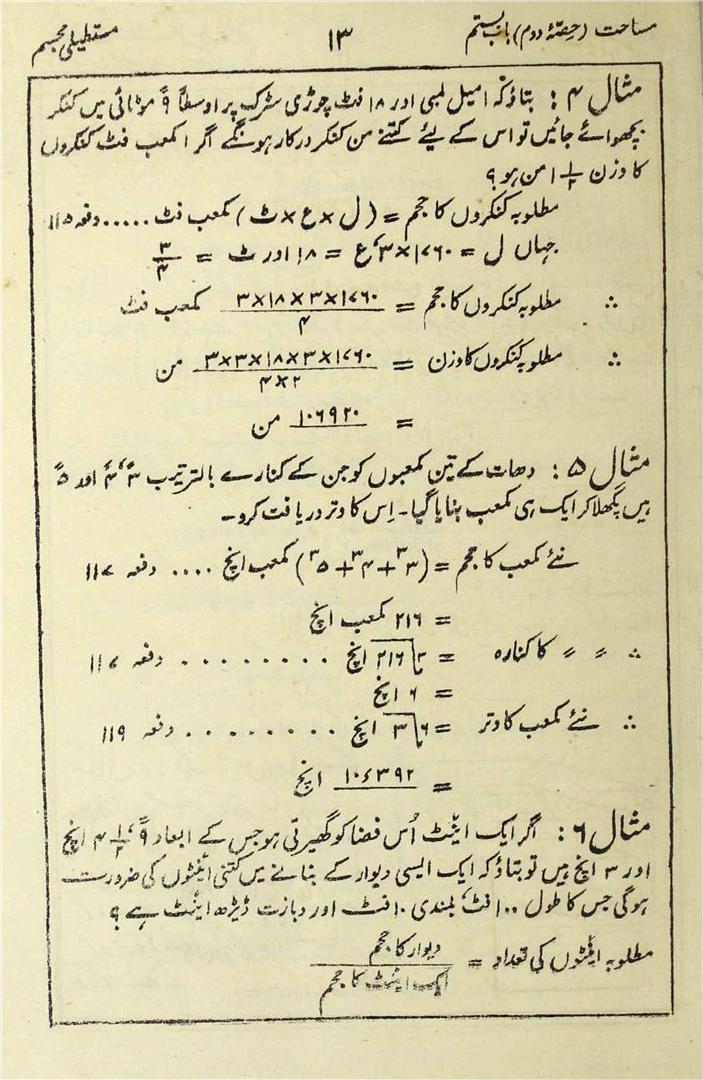 مساحت (حصۂ دوم) باب بستم
۱۳
مستطیلی مجسم
مثال ۴ : بتاؤ کہ ۱ میل لمبی اور ۱۸ فٹ چوڑی سڑک پر اوسطاً ۹ً موٹائی میں کنکر
بچھوائے جائیں تو اس کے لیئے کتنے من کنکر درکار ہونگے اگر ۱ مکعب فٹ کنکروں
کا وزن ۱ ۱/۲ من ہو ؟
مطلوبہ کنکروں کا حجم = (ل × ع × ٹ) مکعب فٹ ..... دفعہ ۱۱۵
جہاں ل = ۱۷۶۰ × ۳، ع = ۱۸ اور ٹ = ۳/۴
∴ مطلوبہ کنکروں کا حجم = ۱۷۶۰×۳×۱۸×۳ / ۴ مکعب فٹ
∴ مطلوبہ کنکروں کا وزن = ۱۷۶۰×۳×۱۸×۳×۳ / ۴×۲ من
= ۱۰۶۹۲۰ من
مثال ۵ : دھات کے تین مکعبوں کو جن کے کنارے بالترتیب ۳ً، ۴ً اور ۵ً
ہیں پگھلا کر ایک ہی مکعب بنایا گیا۔ اِس کا وتر دریافت کرو۔
نئے مکعب کا حجم = (۳³ + ۴³ + ۵³) مکعب انچ .... دفعہ ۱۱۷
= ۲۱۶ مکعب انچ
∴ 〃 〃 کا کنارہ = ∛۲۱۶ انچ ........ دفعہ ۱۱۷
= ۶ انچ
∴ نئے مکعب کا وتر = ۶√۳ انچ ........ دفعہ ۱۱۹
= ۱۰٫۳۹۲ انچ
مثال ۶ : اگر ایک اینٹ اُس فضا کو گھیرتی ہو جس کے ابعاد ۹ً، ۴ ۱/۲ انچ
اور ۳ انچ ہیں تو بتاؤ کہ ایک ایسی دیوار کے بنانے میں کتنی اینٹوں کی ضرورت
ہوگی جس کا طول ۱۰۰ فٹ، بلندی ۱۰ فٹ اور دبازت ڈیڑھ اینٹ ہے ؟
مطلوبہ اینٹوں کی تعداد = دیوار کا حجم / ایک اینٹ کا حجم